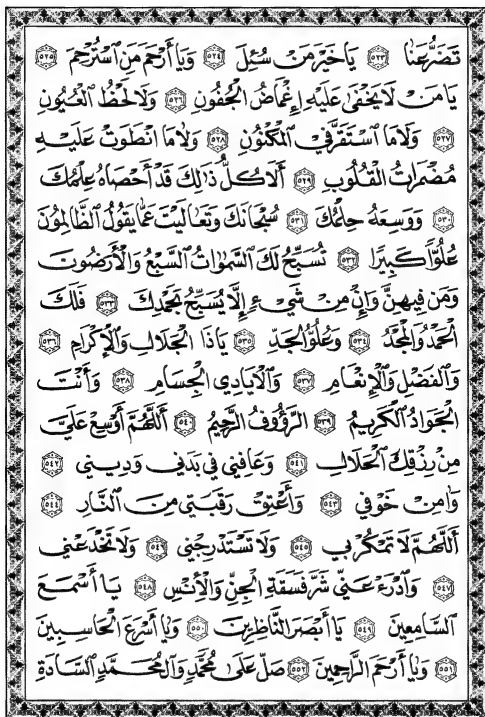 تَضَرُّعَنَا ﴿٥٢٣﴾ يَا خَيْرَ مَنْ سُئِلَ ﴿٥٢٤﴾ وَيَا أَرْحَمَ مَنِ ٱسْتُرْحِمَ ﴿٥٢٥﴾
يَا مَنْ لَا يَخْفَىٰ عَلَيْهِ إِغْمَاضُ الْجُفُونِ ﴿٥٢٦﴾ وَلَا لَحْظُ الْعُيُونِ
﴿٥٢٧﴾ وَلَا مَا ٱسْتَقَرَّ فِي الْمَكْنُونِ ﴿٥٢٨﴾ وَلَا مَا انْطَوَتْ عَلَيْهِ
مُضْمَرَاتُ الْقُلُوبِ ﴿٥٢٩﴾ أَلَا كُلُّ ذَٰلِكَ قَدْ أَحْصَاهُ عِلْمُكَ
﴿٥٣٠﴾ وَوَسِعَهُ حِلْمُكَ ﴿٥٣١﴾ سُبْحَانَكَ وَتَعَالَيْتَ عَمَّا يَقُولُ الظَّالِمُونَ
عُلُوًّا كَبِيرًا ﴿٥٣٢﴾ تُسَبِّحُ لَكَ السَّمٰوَاتُ السَّبْعُ وَالْأَرَضُونَ
وَمَنْ فِيهِنَّ وَإِنْ مِنْ شَيْءٍ إِلَّا يُسَبِّحُ بِحَمْدِكَ ﴿٥٣٣﴾ فَلَكَ
الْحَمْدُ وَالْمَجْدُ ﴿٥٣٤﴾ وَعُلُوُّ الْجَدِّ ﴿٥٣٥﴾ يَا ذَا الْجَلَالِ وَالْإِكْرَامِ ﴿٥٣٦﴾
وَالْفَضْلِ وَالْإِنْعَامِ ﴿٥٣٧﴾ وَالْأَيَادِي الْجِسَامِ ﴿٥٣٨﴾ وَأَنْتَ
الْجَوَادُ الْكَرِيمُ ﴿٥٣٩﴾ الرَّؤُوفُ الرَّحِيمُ ﴿٥٤٠﴾ أَللّٰهُمَّ أَوْسِعْ عَلَيَّ
مِنْ رِزْقِكَ الْحَلَالِ ﴿٥٤١﴾ وَعَافِنِي فِي بَدَنِي وَدِينِي ﴿٥٤٢﴾
وَاٰمِنْ خَوْفِي ﴿٥٤٣﴾ وَأَعْتِقْ رَقَبَتِي مِنَ النَّارِ ﴿٥٤٤﴾
أَللّٰهُمَّ لَا تَمْكُرْ بِي ﴿٥٤٥﴾ وَلَا تَسْتَدْرِجْنِي ﴿٥٤٦﴾ وَلَا تَخْدَعْنِي
﴿٥٤٧﴾ وَٱدْرَءْ عَنِّي شَرَّ فَسَقَةِ الْجِنِّ وَالْأِنْسِ ﴿٥٤٨﴾ يَا أَسْمَعَ
السَّامِعِينَ ﴿٥٤٩﴾ يَا أَبْصَرَ النَّاظِرِينَ ﴿٥٥٠﴾ وَيَا أَسْرَعَ الْحَاسِبِينَ
﴿٥٥١﴾ وَيَا أَرْحَمَ الرَّاحِمِينَ ﴿٥٥٢﴾ صَلِّ عَلَىٰ مُحَمَّدٍ وَاٰلِ مُحَمَّدٍ السَّادَةِ